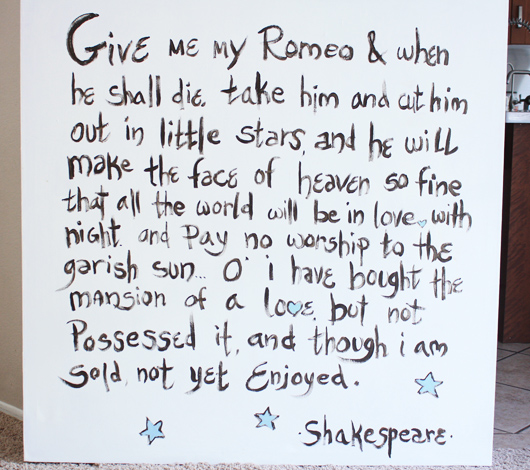 Give me my Romeo & when
he shall die. take him and cut him
out in little stars, and he will
make the face of heaven so fine
that all the world will be in love with
night. and Pay no worship to the
garish sun... O' i have bought the
mansion of a love, but not
Possessed it, and though i am
Sold, not yet Enjoyed.
·Shakespeare·